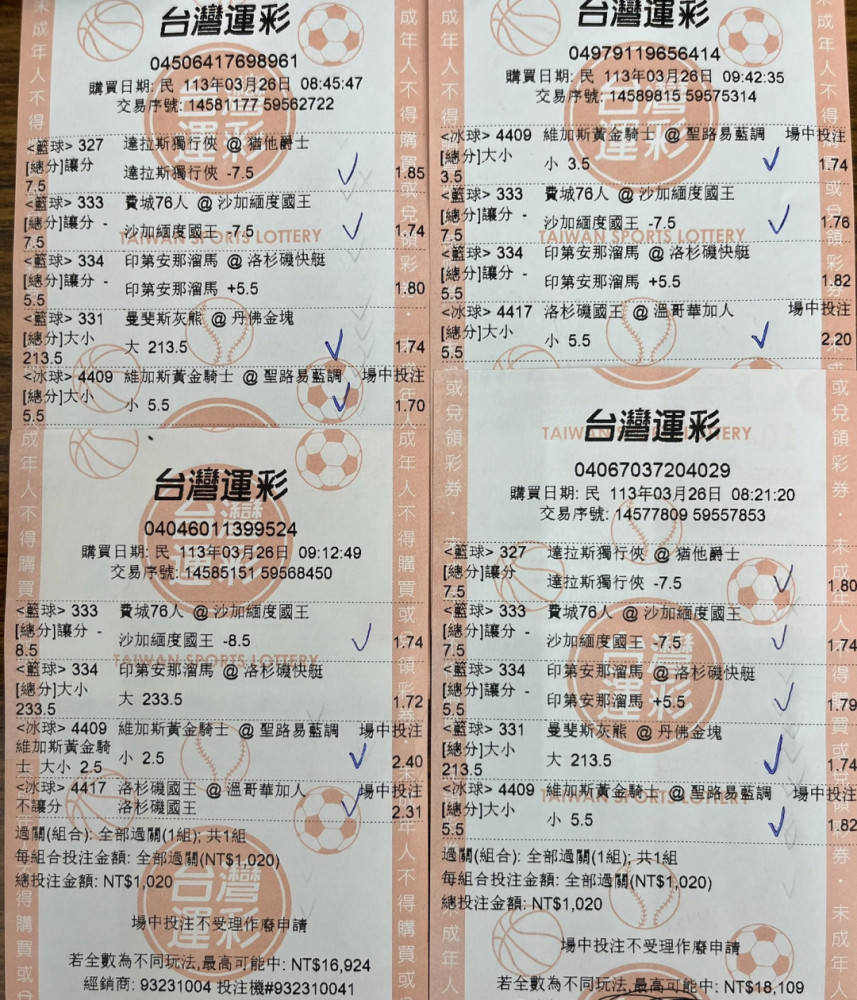 台灣運彩
04506417698961
購買日期: 民 113年03月26日 08:45:47
交易序號: 14581177 59562722
<籃球> 327 達拉斯獨行俠 @ 猶他爵士
[總分]讓分 達拉斯獨行俠 -7.5 1.85
7.5
<籃球> 333 費城76人 @ 沙加緬度國王
[總分]讓分 - 沙加緬度國王 -7.5 1.74
7.5
TAIWAN SPORTS LOTTERY
<籃球> 334 印第安那溜馬 @ 洛杉磯快艇
[總分]讓分 - 印第安那溜馬 +5.5 1.80
5.5
<籃球> 331 曼斐斯灰熊 @ 丹佛金塊
[總分]大小 大 213.5 1.74
213.5
<冰球> 4409 維加斯黃金騎士 @ 聖路易藍調 場中投注
[總分]大小 小 5.5 1.70
5.5
台灣運彩
04979119656414
購買日期: 民 113年03月26日 09:42:35
交易序號: 14589815 59575314
<冰球> 4409 維加斯黃金騎士 @ 聖路易藍調 場中投注
[總分]大小 小 3.5 1.74
3.5
<籃球> 333 費城76人 @ 沙加緬度國王
[總分]讓分 - 沙加緬度國王 -7.5 1.76
7.5
TAIWAN SPORTS LOTTERY
<籃球> 334 印第安那溜馬 @ 洛杉磯快艇
[總分]讓分 - 印第安那溜馬 +5.5 1.82
5.5
<冰球> 4417 洛杉磯國王 @ 溫哥華加人 場中投注
[總分]大小 小 5.5 2.20
5.5
台灣運彩
04046011399524
購買日期: 民 113年03月26日 09:12:49
交易序號: 14585151 59568450
<籃球> 333 費城76人 @ 沙加緬度國王
[總分]讓分 - 沙加緬度國王 -8.5 1.74
8.5
TAIWAN SPORTS LOTTERY
<籃球> 334 印第安那溜馬 @ 洛杉磯快艇
[總分]大小 大 233.5 1.72
233.5
<冰球> 4409 維加斯黃金騎士 @ 聖路易藍調 場中投注
維加斯黃金騎 小 2.5 2.40
士 大小 2.5
<冰球> 4417 洛杉磯國王 @ 溫哥華加人 場中投注
不讓分 洛杉磯國王 2.31
過關(組合): 全部過關(1組); 共1組
每組合投注金額: 全部過關(NT$1,020)
總投注金額: NT$1,020
場中投注不受理作廢申請
若全數為不同玩法,最高可能中: NT$16,924
經銷商: 93231004 投注機#932310041
台灣運彩
04067037204029
購買日期: 民 113年03月26日 08:21:20
交易序號: 14577809 59557853
<籃球> 327 達拉斯獨行俠 @ 猶他爵士
[總分]讓分 達拉斯獨行俠 -7.5 1.80
7.5
<籃球> 333 費城76人 @ 沙加緬度國王
[總分]讓分 - 沙加緬度國王 -7.5 1.74
7.5
<籃球> 334 印第安那溜馬 @ 洛杉磯快艇
[總分]讓分 - 印第安那溜馬 +5.5 1.79
5.5
<籃球> 331 曼斐斯灰熊 @ 丹佛金塊
[總分]大小 大 213.5 1.74
213.5
<冰球> 4409 維加斯黃金騎士 @ 聖路易藍調 場中投注
[總分]大小 小 5.5 1.82
5.5
過關(組合): 全部過關(1組); 共1組
每組合投注金額: 全部過關(NT$1,020)
總投注金額: NT$1,020
場中投注不受理作廢申請
若全數為不同玩法,最高可能中: NT$18,109